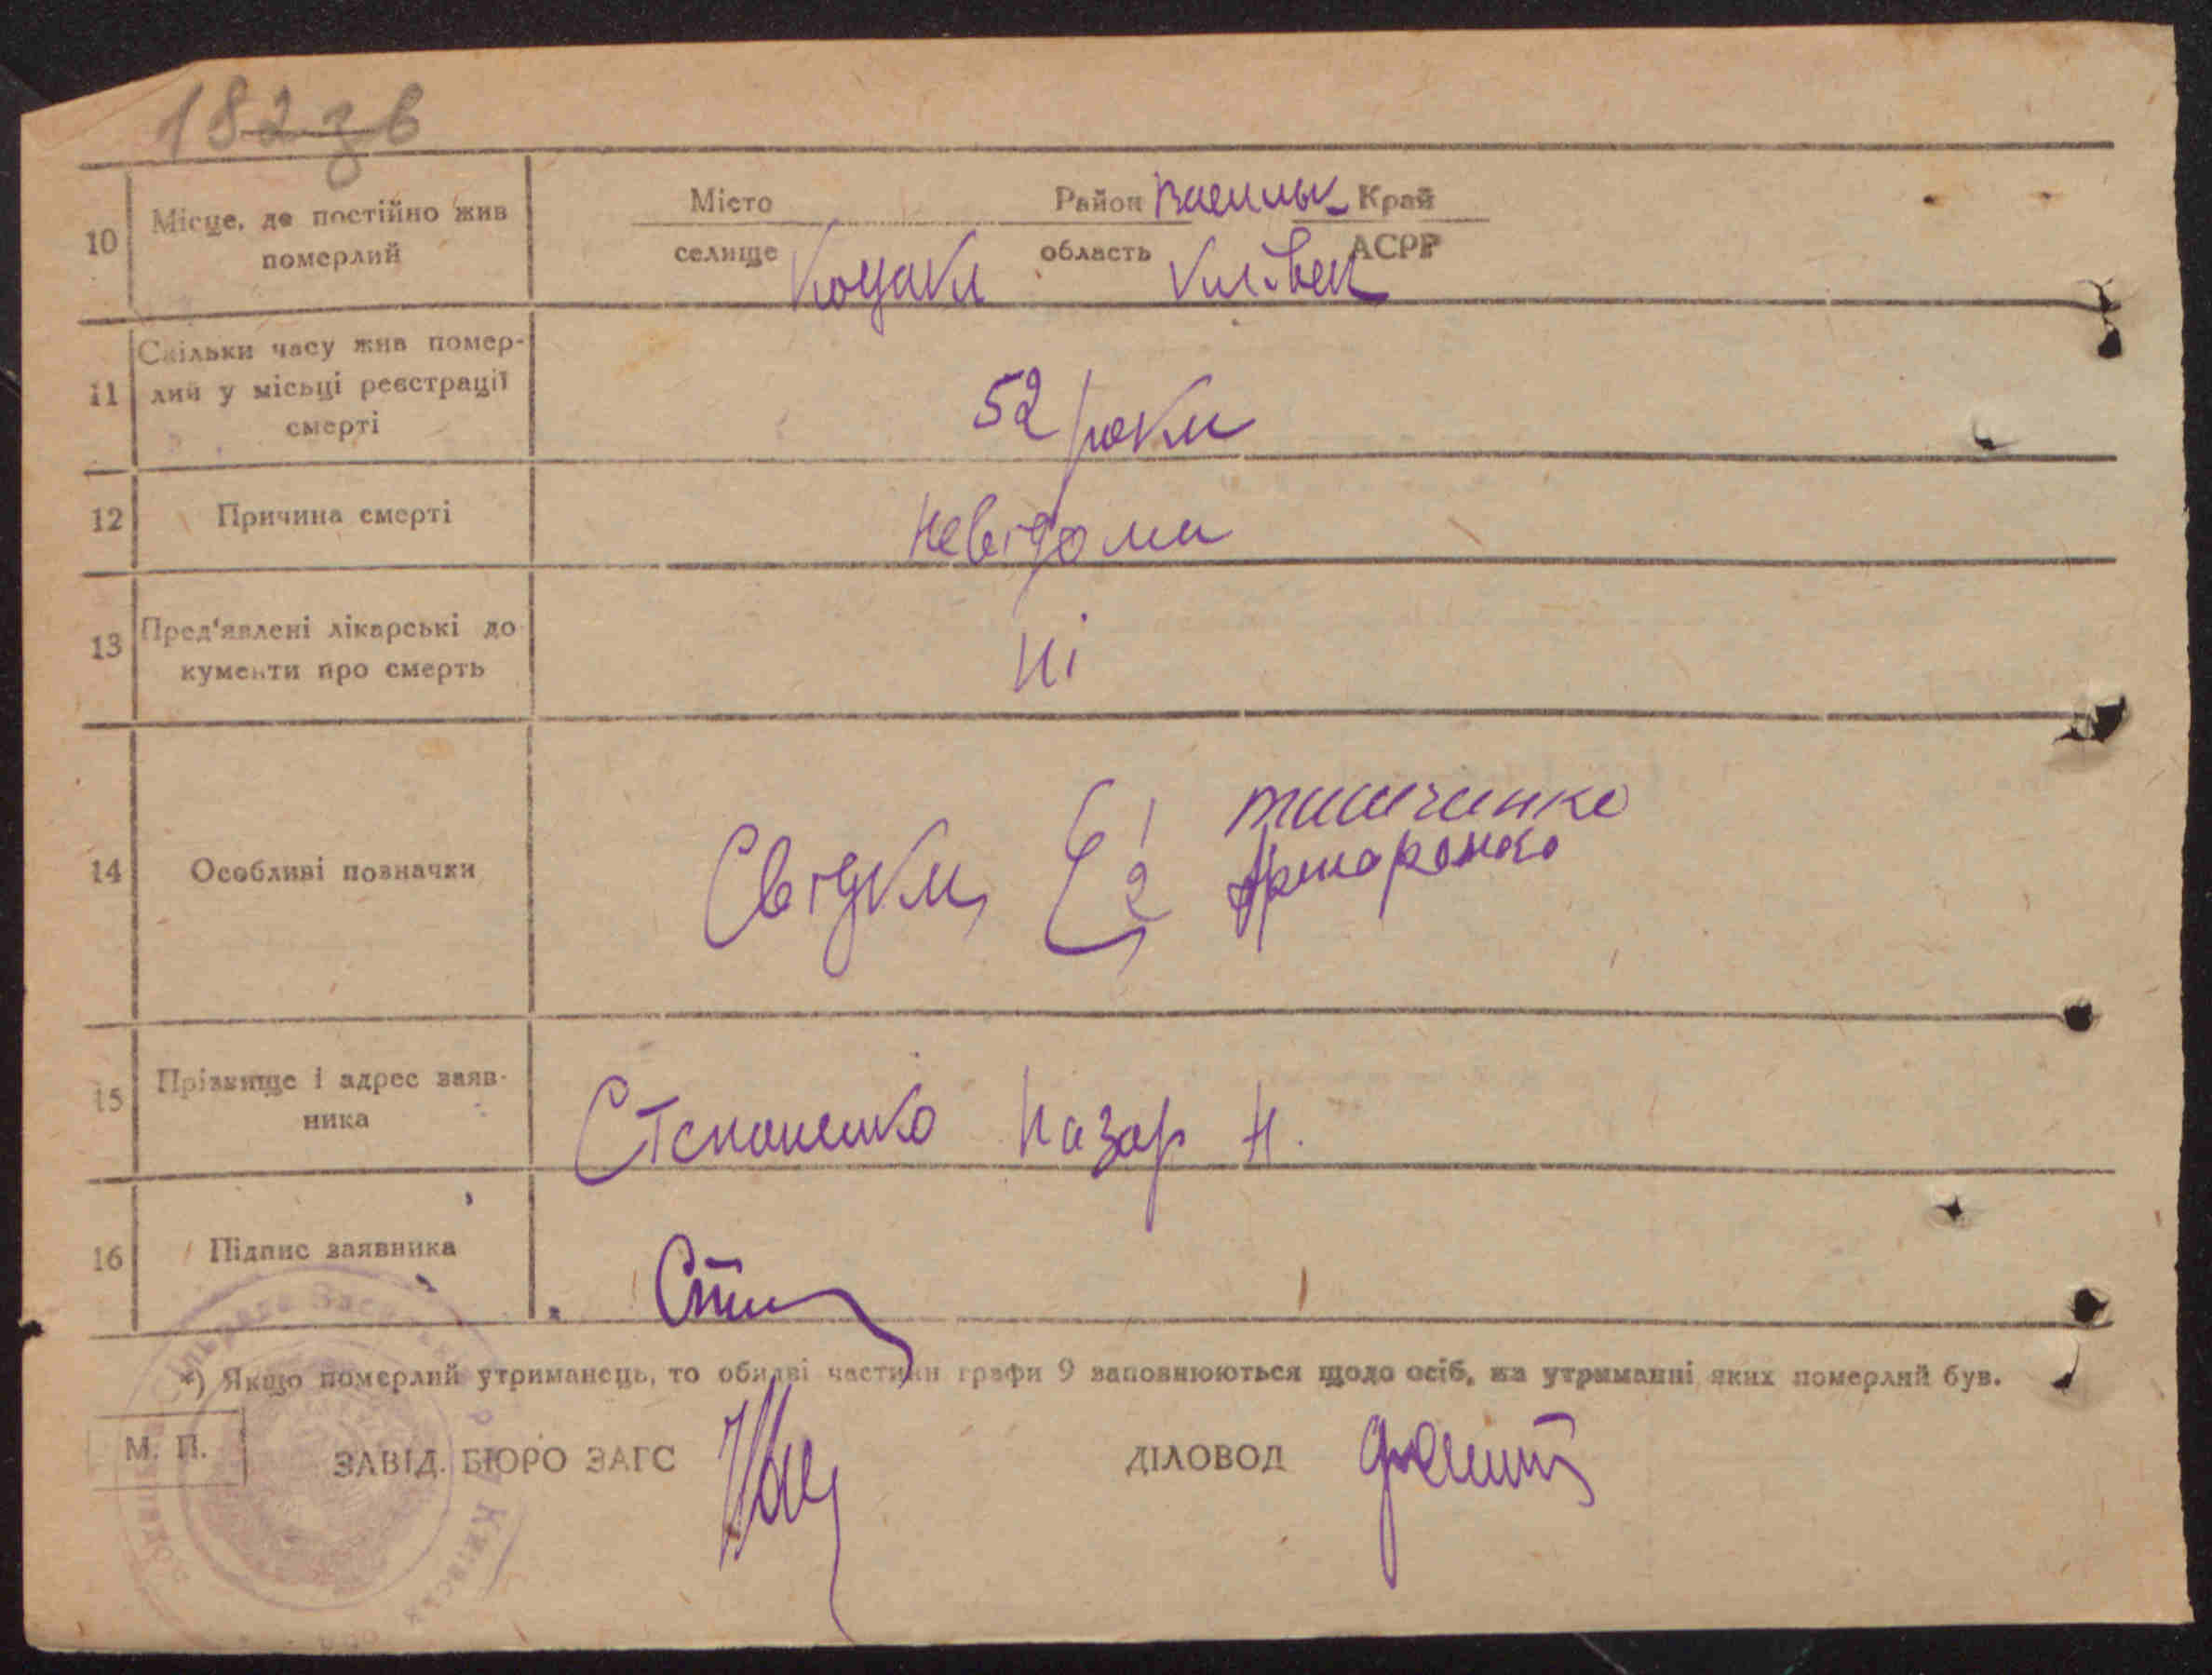 182 зв
10 Місце, де постійно жив померлий
Місто Район Васильк Край
селище Коцаки область Київськ АСРР
11 Скільки часу жив помер-
лий у місьці реєстрації
смерті
52 роки
12 Причина смерті
невідома
13 Пред'явлені лікарські до
кументи про смерть
ні
14 Особливі позначки
Свідки 1 Тишченко
2
15 Прізвище і адрес заяв-
ника
Степаненко Назар Н.
16 Підпис заявника
*) Якщо померлий утриманець, то обидві частини графи 9 заповнюються щодо осіб, на утриманні яких померлий був.
М. П.
ЗАВІД. БЮРО ЗАГС
ДІЛОВОД